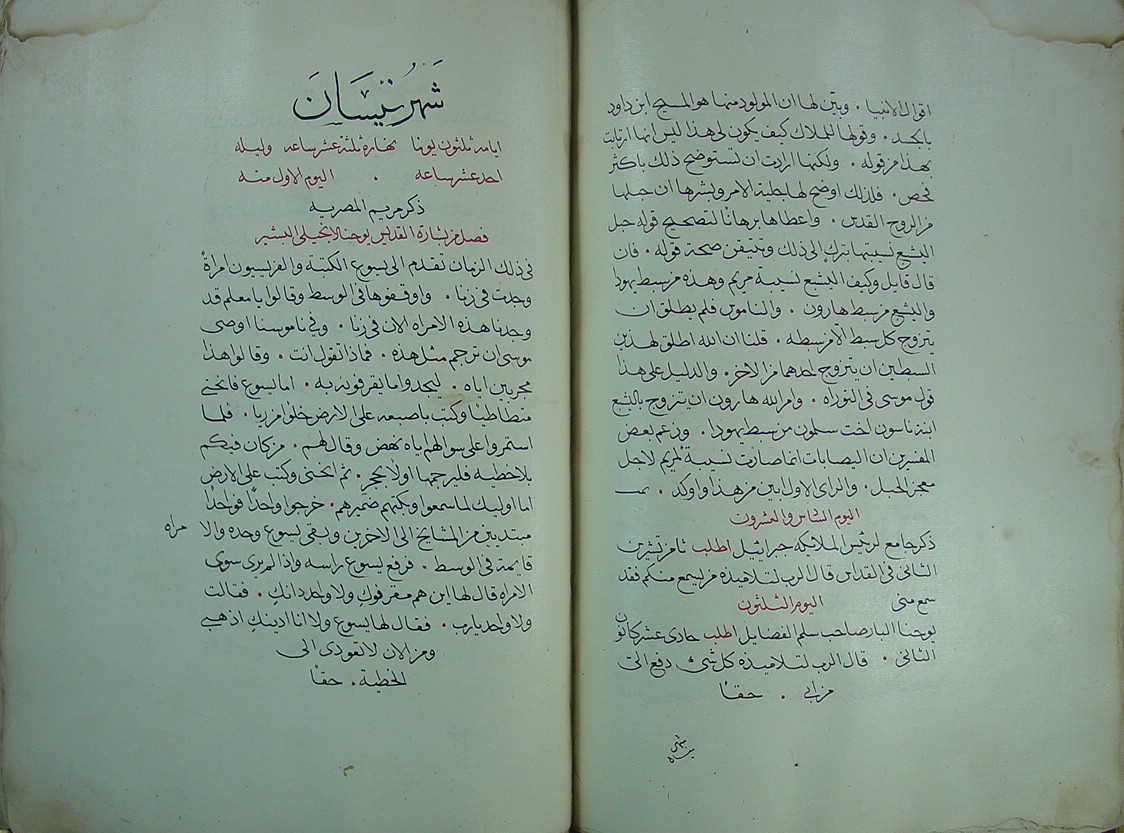 اقوال الانبيا . وبيّن لها ان المولود منها هو المسيح ابن داود
بالجسد . وقولها للملاك كيف يكون لي هذا ليس انها ارتابت
بهذا من قوله . ولكنها ارادت ان تستوضح ذلك باكثر
فحص . فلذلك اوضح لها جلية الامر وبشرها ان حبلها
من الروح القدس . واعطاها برهانًا لتصحيح قوله حبل
اليشبع نسيبتها بترك الى ذلك وتتيقن صحة قوله . فان
قال قايل وكيف اليشبع نسيبة مريم وهذه من سبط يهودا
واليشبع من سبط هارون . والناموس فلم يطلق ان
يتزوج كل سبط الّا من سبطه . قلنا ان الله اطلق لهذين
السبطين ان يتزوج احدهما من الآخر . والدليل على هذا
قول موسى في التوراه . وامر الله هارون ان يتزوج باليشبع
ابنة ناسون اخت سلمون من سبط يهودا . وزعم بعض
المفسرين ان اليصابات انما صارت نسيبة لمريم لاجل
معجز الحبل . والراى الاول ابين من هذا واوكد .
اليوم السادس والعشرون
ذكر جامع لرئيس الملايكه جبراييل اطلب ثامن تشرين
الثانى في القداس قال الرب لتلاميذه من يسمع منكم فقد
سمع منى اليوم الثلثون
يوحنا البار صاحب سلم الفضايل اطلب حادى عشر كانون
الثانى . قال الرب لتلاميذه كل شئ دفع الىّ
من ابي . حقًا
شهر نيسان
ايامه ثلثون يومًا نهاره ثلثة عشر ساعه وليله
احد عشر ساعه . اليوم الاول منه
ذكر مريم المصريه
فصل من بشارة القديس يوحنا الانجيلى البشير
في ذلك الزمان تقدم الى يسوع الكتبة والفريسيون امراةً
وجدت في زنا . واوقفوها في الوسط وقالوا يا معلم قد
وجدنا هذه الامراه الان في زنا . وفي ناموسنا اوصى
موسى ان ترجم مثل هذه . فماذا تقول انت . وقالوا هذا
مجربين اياه . ليجدوا ما يقرفونه به . اما يسوع فانحنى
متطاطيًا وكتب باصبعه على الارض خلوًا من ريا . فلما
استمروا على سوالهم اياه نهض وقال لهم . من كان فيكم
بلا خطيه فليرجمها اولًا بحجر . ثم انحنى وكتب على الارض
اما اوليك لما سمعوا وبكتهم ضميرهم . خرجوا واحدًا فواحدًا
مبتديين من المشايخ الى الاخرين وبقى يسوع وحده والا مراه
قايمة في الوسط . فرفع يسوع راسه واذ لم يرى سوى
الامراه قال لها اين هم مقرفوكِ ولا واحد دانكِ . فقالت
ولا واحد يا رب . فقال لها يسوع ولا انا ادينكِ اذهبى
ومن الان لا تعودى الى
الخطية . حقًا